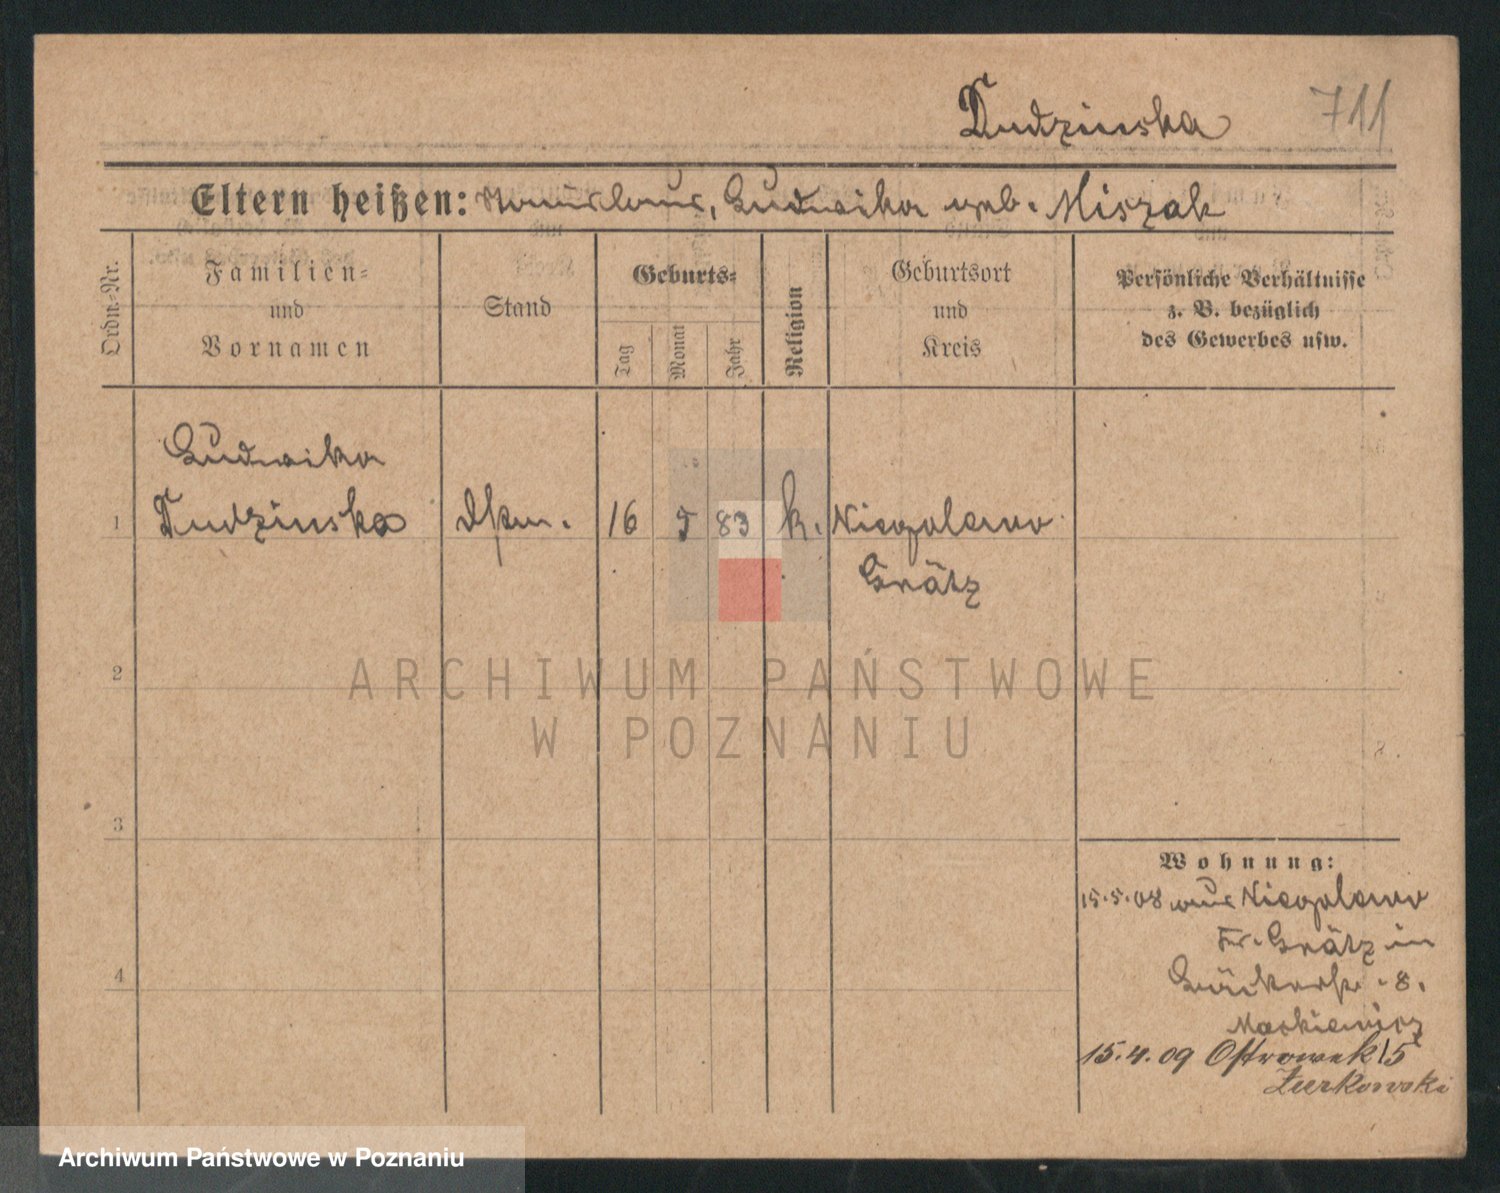 Dudzinska 711
Eltern heißen: Stanislaus, Ludwika geb. Miszak
Ordn.-Nr.
Familien-
und
Vornamen
Stand
Geburts-
Tag
Monat
Jahr
Religion
Geburtsort
und
Kreis
Persönliche Verhältnisse
z. B. bezüglich
des Gewerbes usw.
Ludwika
1 Dudzinska 16 5 83 k. Niegolewo
Grätz
2
3
4
Wohnung:
15.5.08 aus Niegolewo
Kr. Grätz in
Bäckerstr. 8.
Maskiewicz
15.4.09 Ostrowek 15
Zurkowski
ARCHIWUM PAŃSTWOWE
W POZNANIU
Archiwum Państwowe w Poznaniu